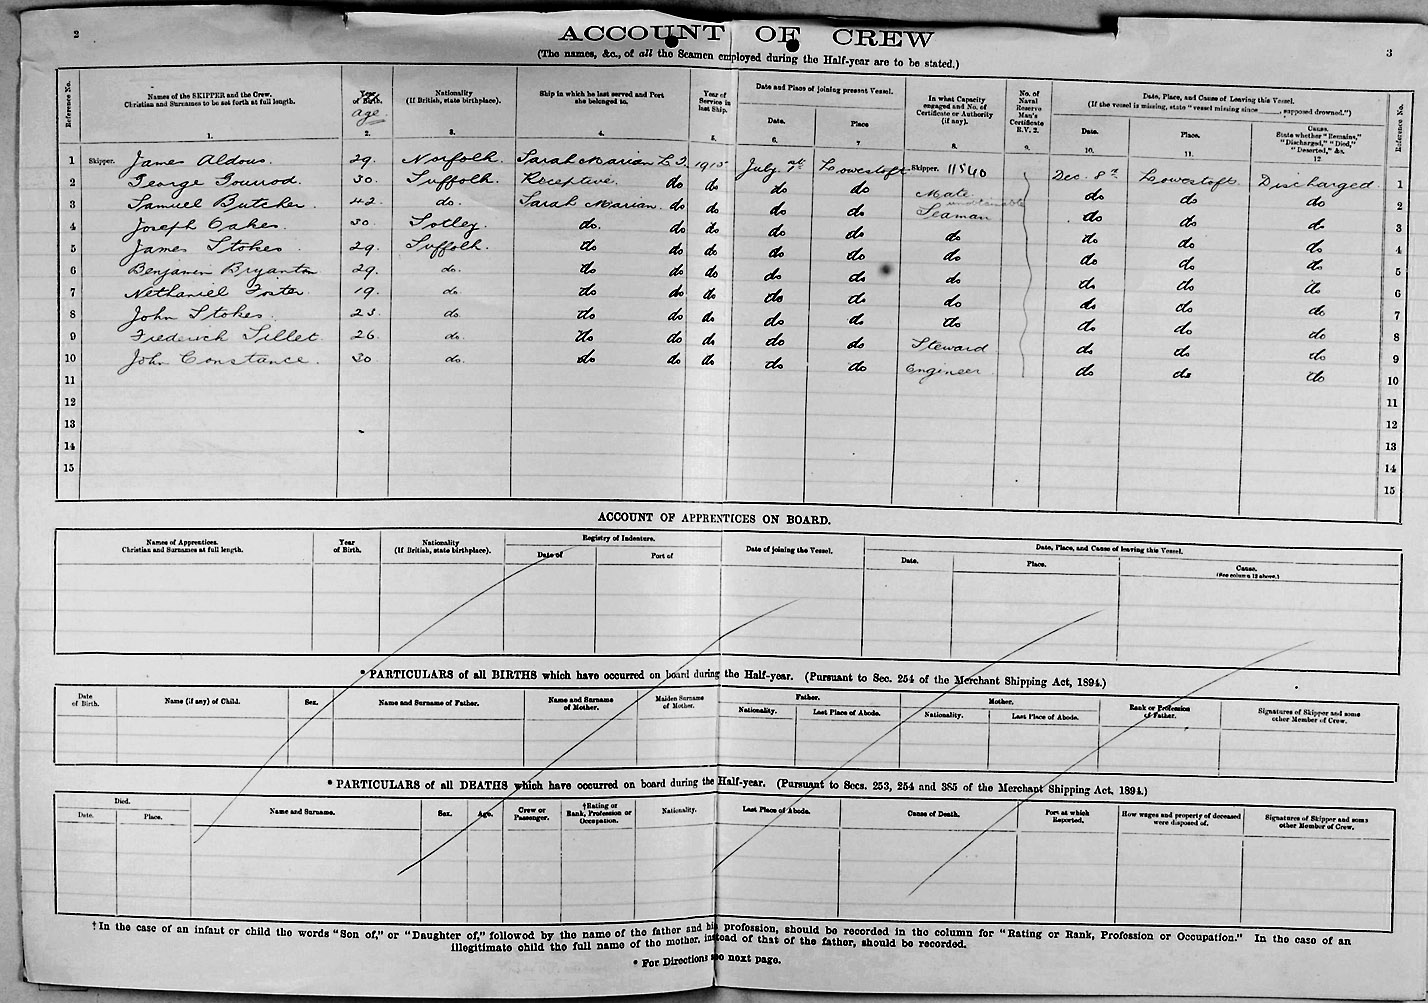 2
3
ACCOUNT OF CREW
(The names, &c., of all the Seamen employed during the Half-year are to be stated.)
Reference No.
Names of the SKIPPER and the Crew.
Christian and Surnames to be set forth at full length.
1.
Year of Birth.
age
2.
Nationality
(If British, state birthplace).
3.
Ship in which he last served and Port
she belonged to.
4.
Year of
Service in
last Ship.
5.
Date and Place of joining present Vessel.
Date.
6.
Place
7
In what Capacity
engaged and No. of
Certificate or Authority
(if any).
8.
No. of
Naval
Reserve
Man's
Certificate
R.V. 2.
9.
Date, Place, and Cause of Leaving this Vessel.
(If the vessel is missing, state "vessel missing since ______, supposed drowned.")
Date.
10.
Place.
11.
Cause.
State whether "Remains,"
"Discharged," "Died,"
"Deserted," &c.
12
Reference No.
1 Skipper. James Aldous. 29. Norfolk. Sarah Marian L.T. 1915 July 1st Lowestoft Skipper. 11540 Dec. 8th Lowestoft. Discharged. 1
2 George 30. Suffolk. Receptive. do do do do Mate do do do 2
3 Samuel Butcher 42. do. Sarah Marian. do do do do Seaman do do do 3
4 Joseph Oakes. 30. Sotley. do. do do do do do do do do 4
5 James Stokes 29. Suffolk. do do do do do do do do do 5
6 Benjamin Bryanton 29. do. do do do do do do do do do 6
7 Nethaniel Foster. 19. do. do do do do do do do do do 7
8 John Stokes. 23. do. do do do do do do do do do 8
9 Frederick Sillet 26. do. do do do do do Steward do do do 9
10 John Constance. 30 do. do do do do do Engineer do do do 10
11 11
12 12
13 13
14 14
15 15
ACCOUNT OF APPRENTICES ON BOARD.
Names of Apprentices.
Christian and Surnames at full length.
Year
of Birth.
Nationality
(If British, state birthplace).
Registry of Indenture.
Date of
Port of
Date of joining the Vessel.
Date, Place, and Cause of leaving this Vessel.
Date.
Place.
Cause.
(See column 12 above.)
* PARTICULARS of all BIRTHS which have occurred on board during the Half-year. (Pursuant to Sec. 254 of the Merchant Shipping Act, 1894.)
Date
of Birth.
Name (if any) of Child.
Sex.
Name and Surname of Father.
Name and Surname
of Mother.
Maiden Surname
of Mother.
Father.
Nationality.
Last Place of Abode.
Mother.
Nationality.
Last Place of Abode.
Rank or Profession
of Father.
Signatures of Skipper and some
other Member of Crew.
* PARTICULARS of all DEATHS which have occurred on board during the Half-year. (Pursuant to Secs. 253, 254 and 385 of the Merchant Shipping Act, 1894.)
Died.
Date.
Place.
Name and Surname.
Sex.
Age.
Crew or
Passenger.
†Rating or
Rank, Profession or
Occupation.
Nationality.
Last Place of Abode.
Cause of Death.
Port at which
Reported.
How wages and property of deceased
were disposed of.
Signatures of Skipper and some
other Member of Crew.
† In the case of an infant or child the words "Son of," or "Daughter of," followed by the name of the father and his profession, should be recorded in the column for "Rating or Rank, Profession or Occupation." In the case of an
illegitimate child the full name of the mother, instead of that of the father, should be recorded.
* For Directions see next page.